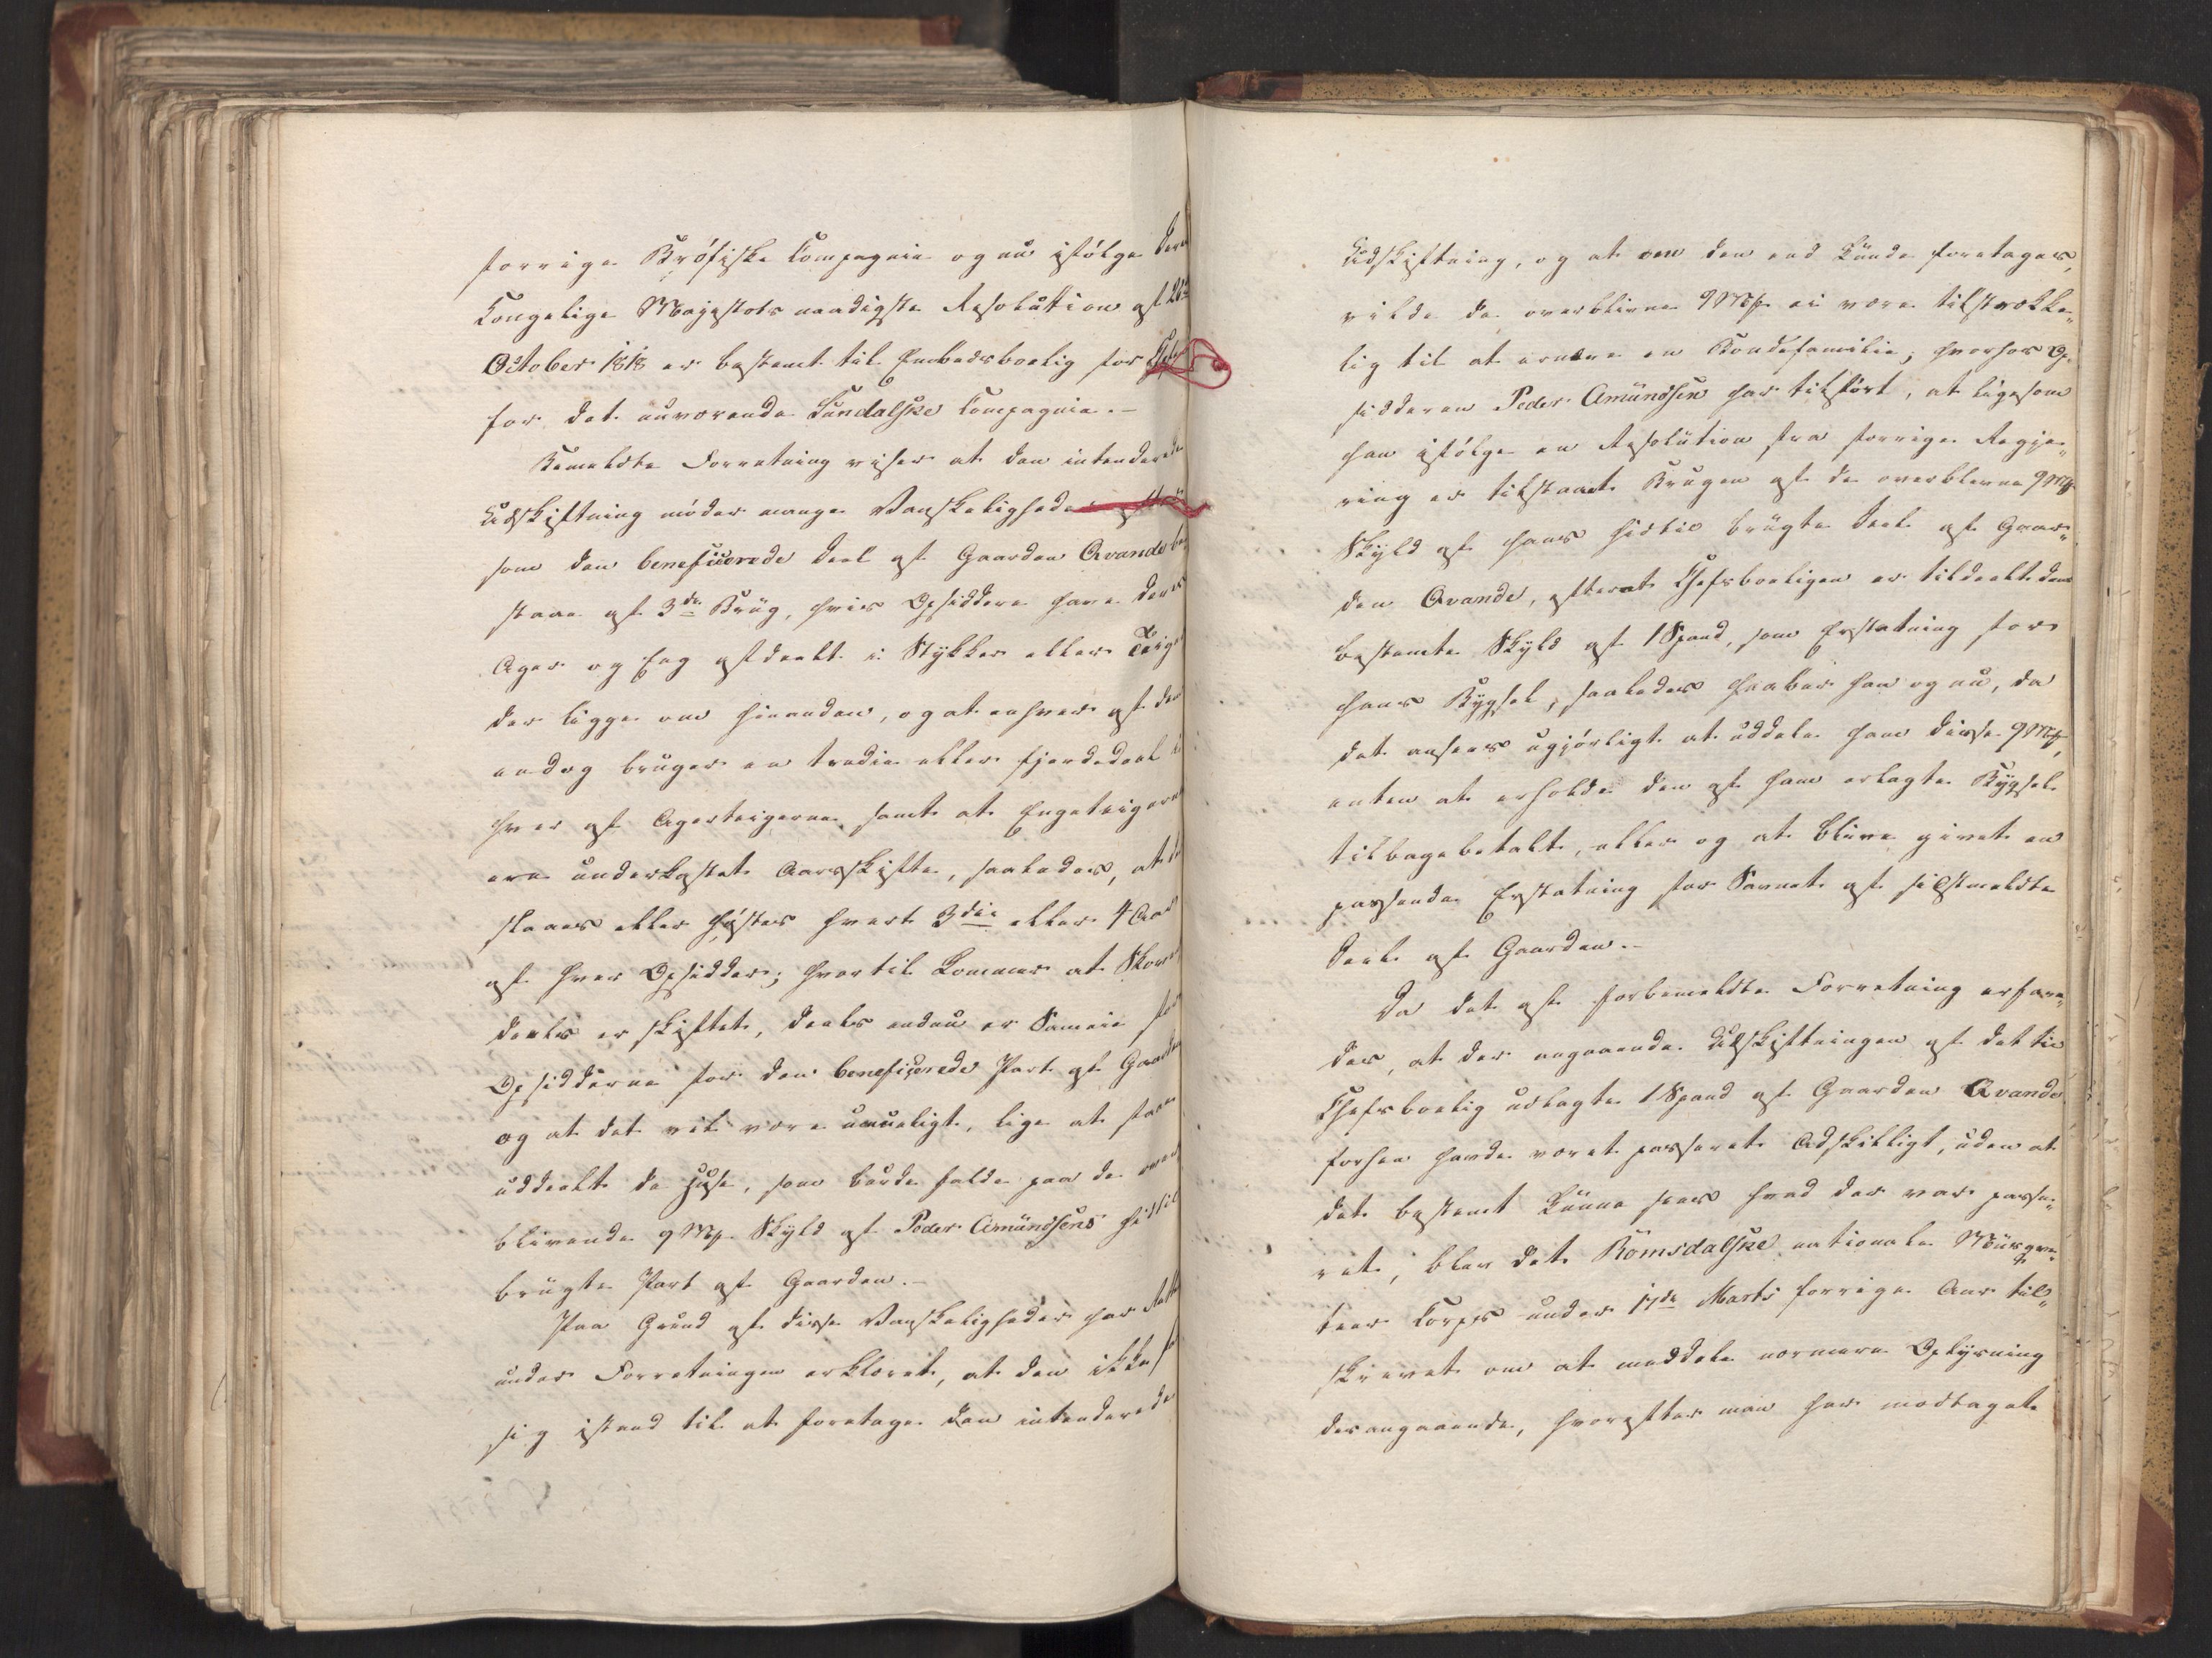 forrige Brøsiske Compagnie og nu ifølge Deres
Kongelige Majestæts naadigste Resolution af 26de
October 1818 er bestemt til Embedsboelig for Chefen
for det nuværende Sundalske Compagnie.-
Bemeldte Forretning viser at den intenderede
Udskiftning møder mange Vanskeligheder
som den beneficerede Deel af Gaarden Qvande be-
staae af 3de Brug, hvis Opsiddere have deres
Ager og Eng afdeelt i Stykker eller Teige
der ligge om hinanden, og at enhver af dem
endog bruger en tredie eller fjerdedeel i
hver af Agerteigerne samt at Engeteigerne
ere underkastet Aarsskifte, saaledes, at de
slaaes eller høstes hvert 3die eller 4 Aar
af hver Opsidder; hvortil kommer at Skoven
deels er skiftet, deels endnu er Sameie for
Opsidderne for den beneficerede Part af Gaarden
og at det vil være umueligt, lige at faae
uddeelt de Huse, som burde falde paa de over-
blivende 9 Mp. Skyld af Peder Amundsens hidtil
brugte Part af Gaarden.-
Paa Grund af disse Vanskeligheder har Retten
under Forretningen erklæret, at den ikke
sig istand til at foretage den intenderede
Udskiftning, og at om den end kunde foretages,
vilde de overblivne 9 Mp. ei være tilstrække-
lig til at ernære en Bondefamilie; hvorhos Op-
sidderen Peder Amundsen har tilført, at ligesom
han ifølge en Resolution fra forrige Regje-
ring er tilstaaet Brugen af de overblevne 9 Mp.
Skyld af hans hidtil brugte Deel af Gaar-
den Qvande, efterat Chefsboeligen er tildeelt den
bestemte Skyld af 1 Spand, som Erstatning for
hans Bygsel, saaledes haaber han og nu, da
det ansees ugjørligt at uddele ham disse 9 Mp,
enten at erholde den af ham erlagte Bygsel
tilbagebetalt, eller og at blive givet en
passende Erstatning for Savnet af sidstmeldte
Deel af Gaarden.-
Da det af forbemeldte Forretning erfare-
des, at der angaaende Udskiftningen af det til
Chefsboelig udlagte 1 Spand af Gaarden Qvande
forhen havde været passeret Adskilligt, uden at
det bestemt kunne sees hvad der var passe-
ret, blev det Romsdalske nationale Musque-
teer Corps under 17de Marts forrige Aar til-
skrevet om at meddele nærmere Oplysning
desangaaende, hvorefter man har modtaget